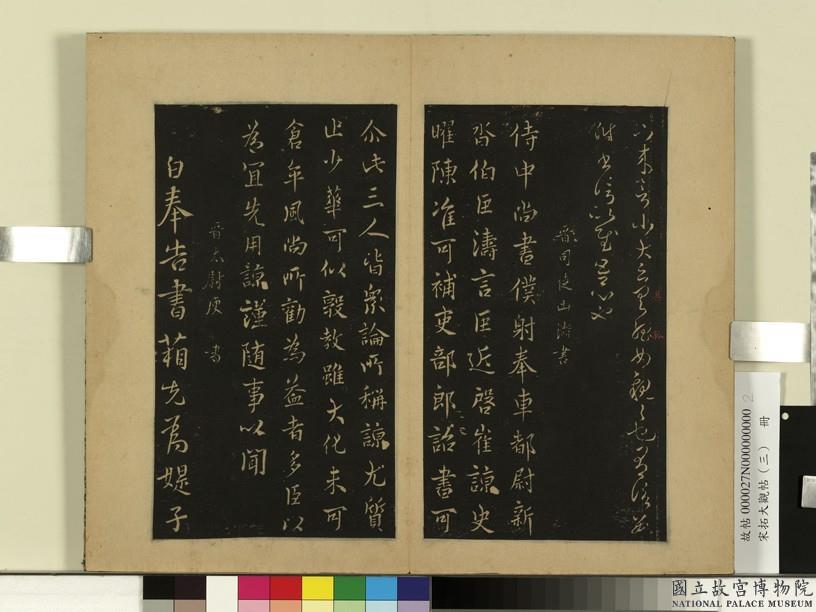 晉司徒山濤書
侍中尚書僕射奉車都尉新
沓伯臣濤言臣近啓崔諒史
曜陳准可補吏部郎詔書可
尒此三人皆衆論所稱諒尤質
止少華可以敦教雖大化未可
倉卒風尚所勸為益者多臣以
為宜先用諒謹随事以聞
晉太尉庾 書
白奉告書箱先為媞子
故帖000027N000000000 2
宋拓大觀帖(三) 冊
國立故宮博物院
NATIONAL PALACE MUSEUM